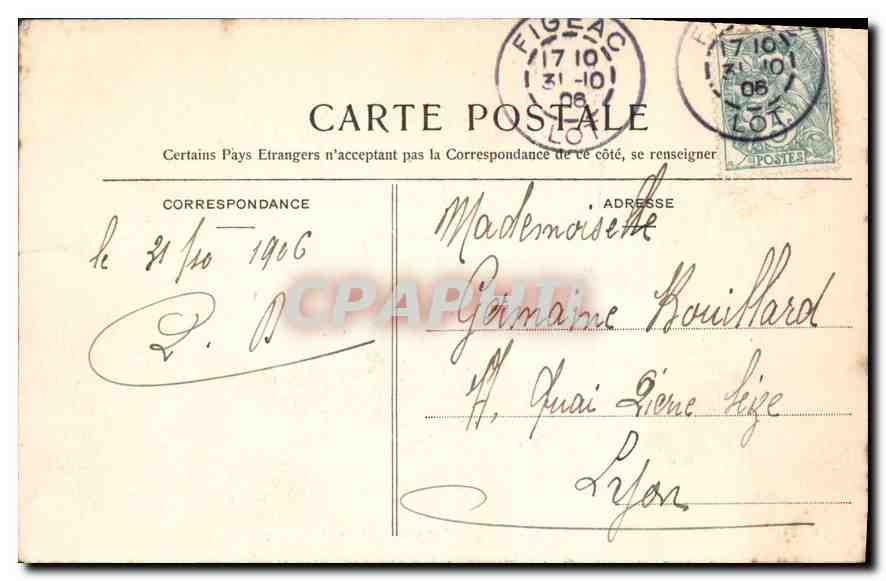 FIGEAC
17 10
31 -10
06
LOT
17 10
31 10
06
LOT
POSTES
CARTE POSTALE
Certains Pays Etrangers n'acceptant pas la Correspondance de ce côté, se renseigner
CORRESPONDANCE
le 31/10 1906
L. B
ADRESSE
Mademoiselle
Germaine Bouillard
Quai
Lyon
CPAPHIL